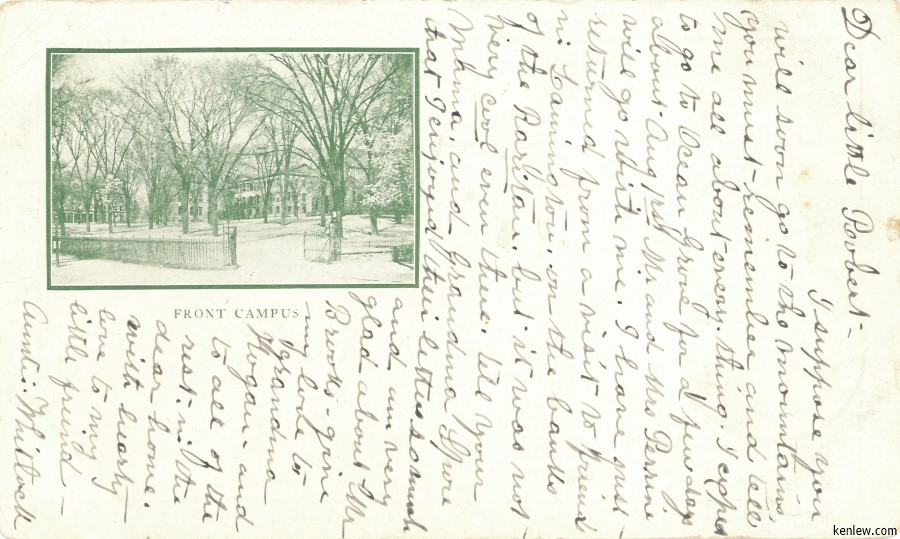 Dear little Robert-
I suppose you
will soon go to the mountains
you must remember and tell
me all about every-thing. I expect
to go to Ocean Grove for a few days
about Aug 1st Mr and Mrs Perrine
will go with me. I have just
returned from a visit to friends
in Lamington, on the banks
of the Raritan. but it was not
very cool even there. tell your
Mama. and Grandma
that I enjoyed their letters so much
and am very
glad about Mr
Brooks - give
my love to
Grandma
Hogan and
to all of the
rest in the
dear home.
with hearty
love to my
little friend -
Auntie Whitlock
FRONT CAMPUS
kenlew.com